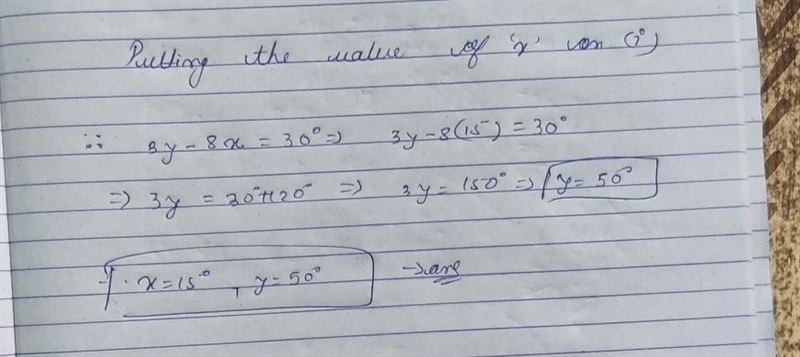 Putting the value of 'x' in (i)
∴ 3y - 8x = 30° => 3y - 8(15) = 30°
=> 3y = 30° + 120° => 3y = 150° => y = 50°
x = 15°, y = 50° → ans